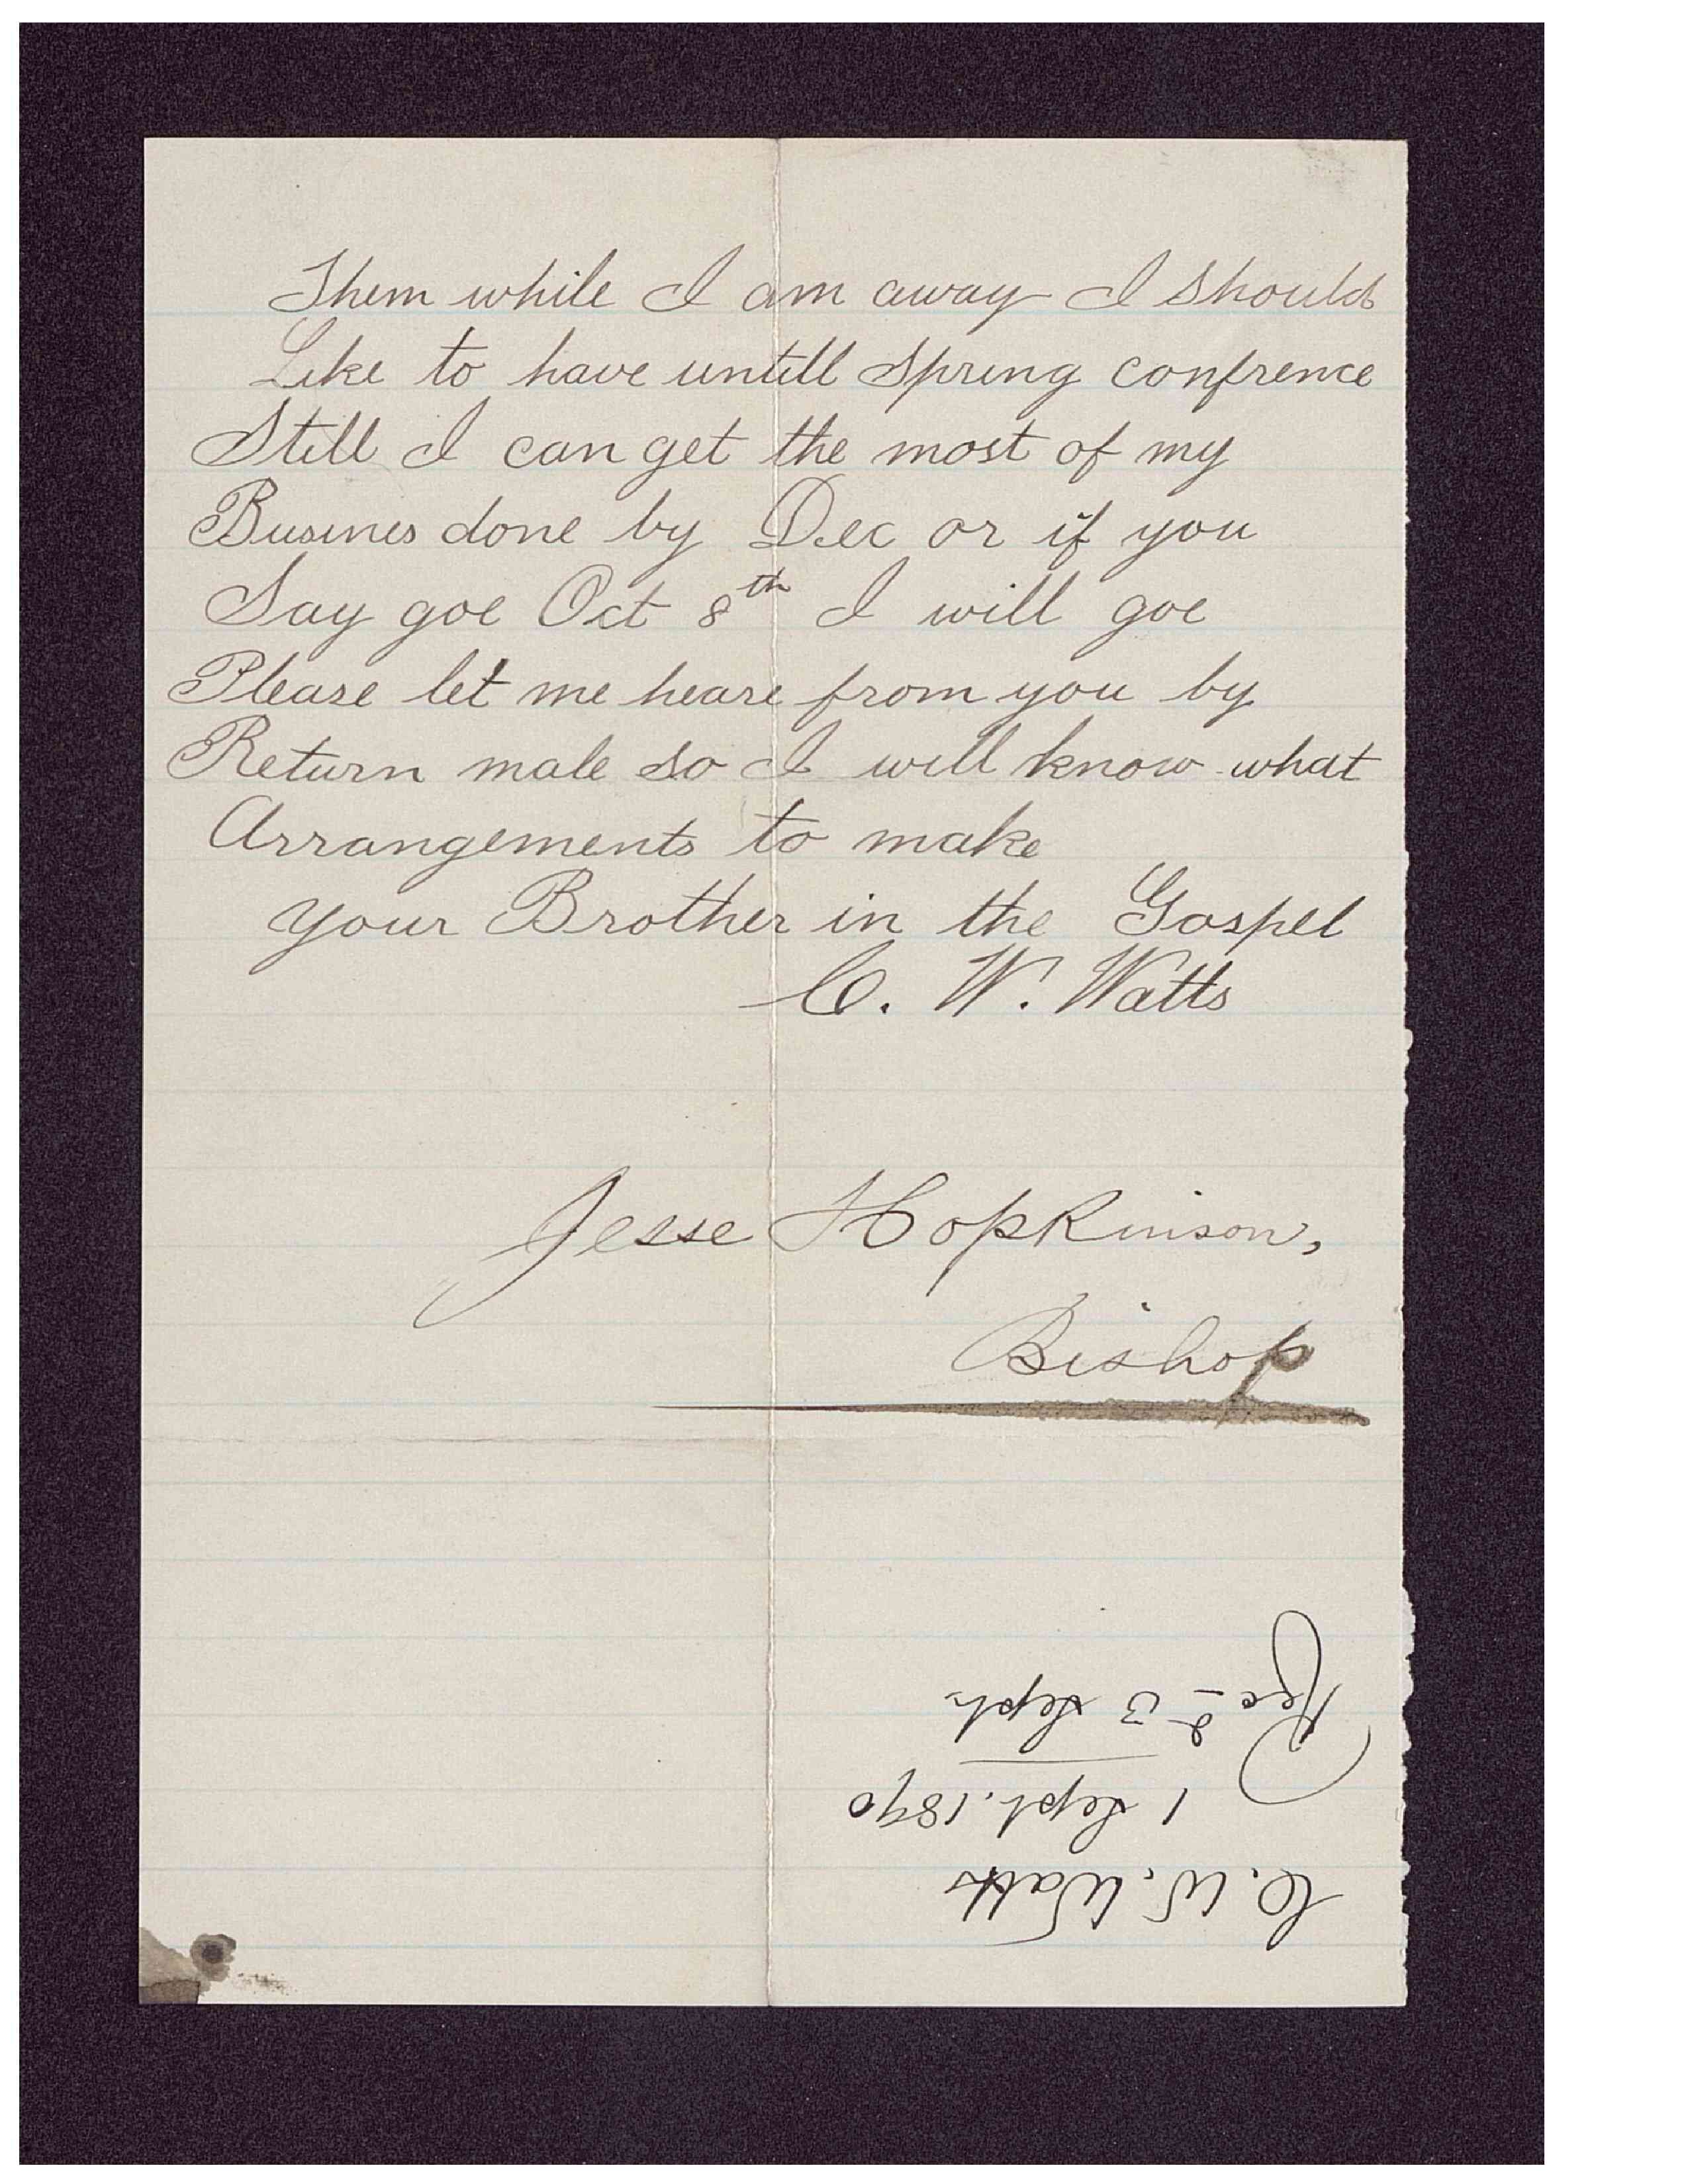 Them while I am away I should
Like to have untill Spring confrence
Still I can get the most of my
Busines done by Dec or if you
Say goe Oct 8th I will goe
Please let me heare from you by
Return male so I will know what
Arrangements to make
your Brother in the Gospel
C. W. Watts
Jesse Hopkinson,
Bishop
C. W. Watts
1 Sept. 1890
Recd 3 Sept.